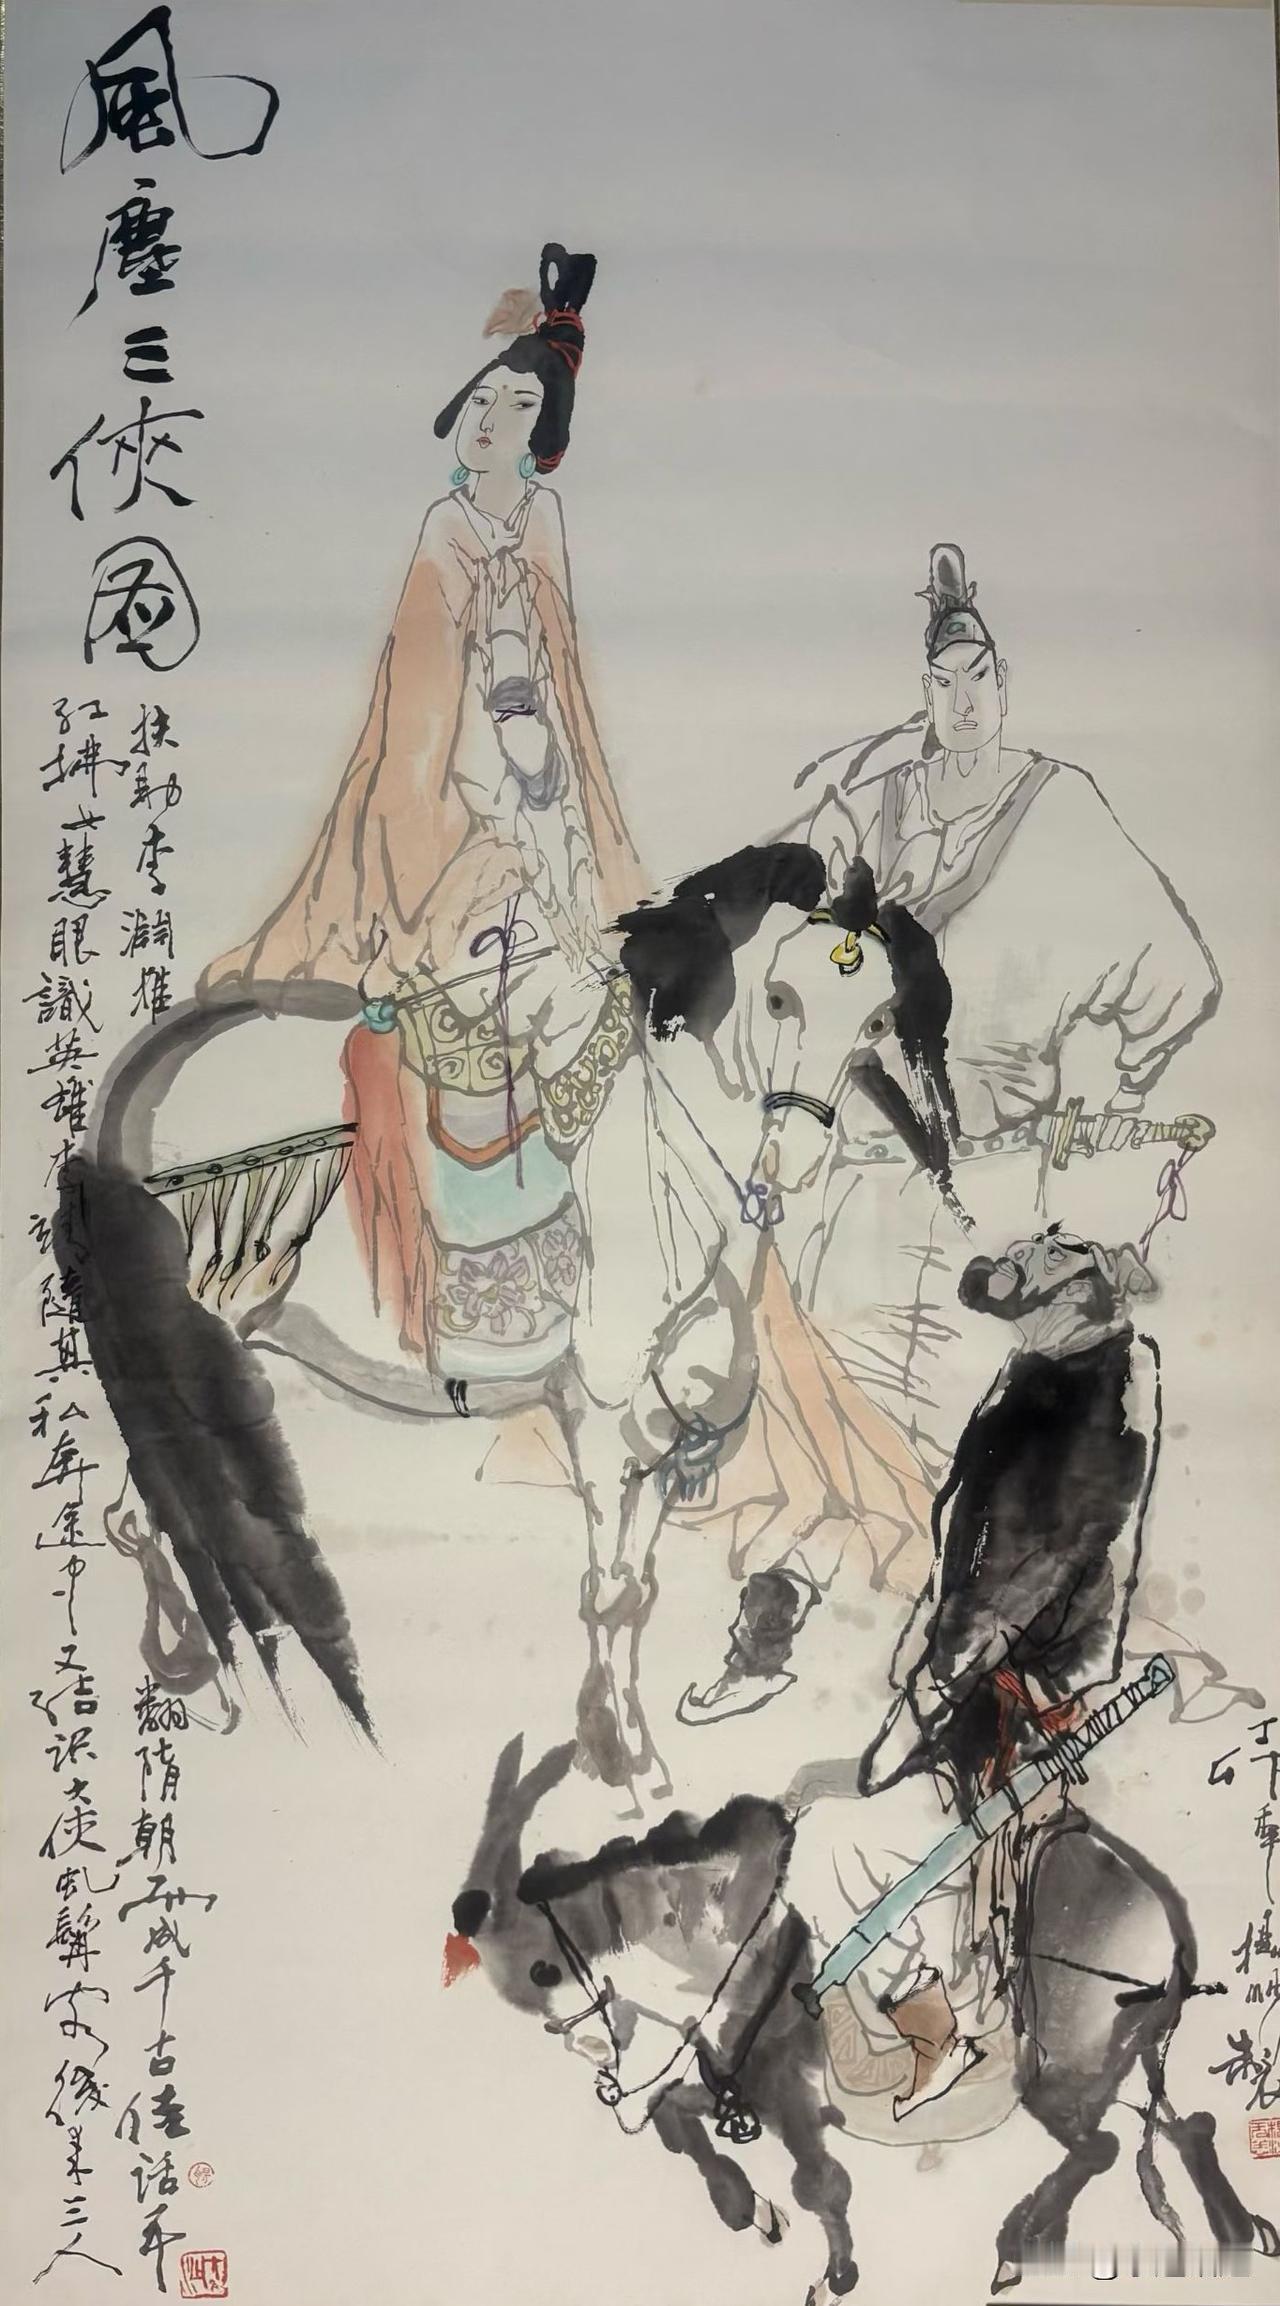 風塵三俠圖
红拂女慧眼識英雄李靖隨其私奔途中又结识大俠虬髯客後来三人
扶助李淵推翻隋朝成千古佳話
丁卯年製